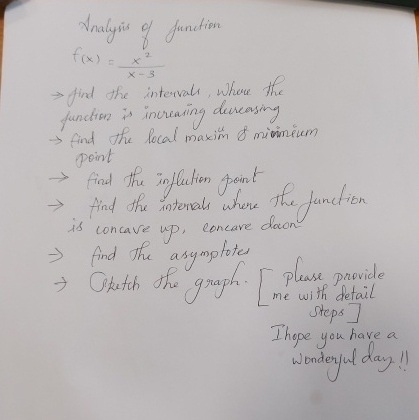 Analysis of function
f(x) = x²
x-3
→ find the intervals, where the
function is increasing decreasing
→ find the local maxim & minimum
point
→ find the inflection point
→ find the intervals where the function
is concave up, concave daon
→ find the asymptotes
→ Sketch the graph. [ please provide
me with detail
steps ]
I hope you have a
wonderful day!!